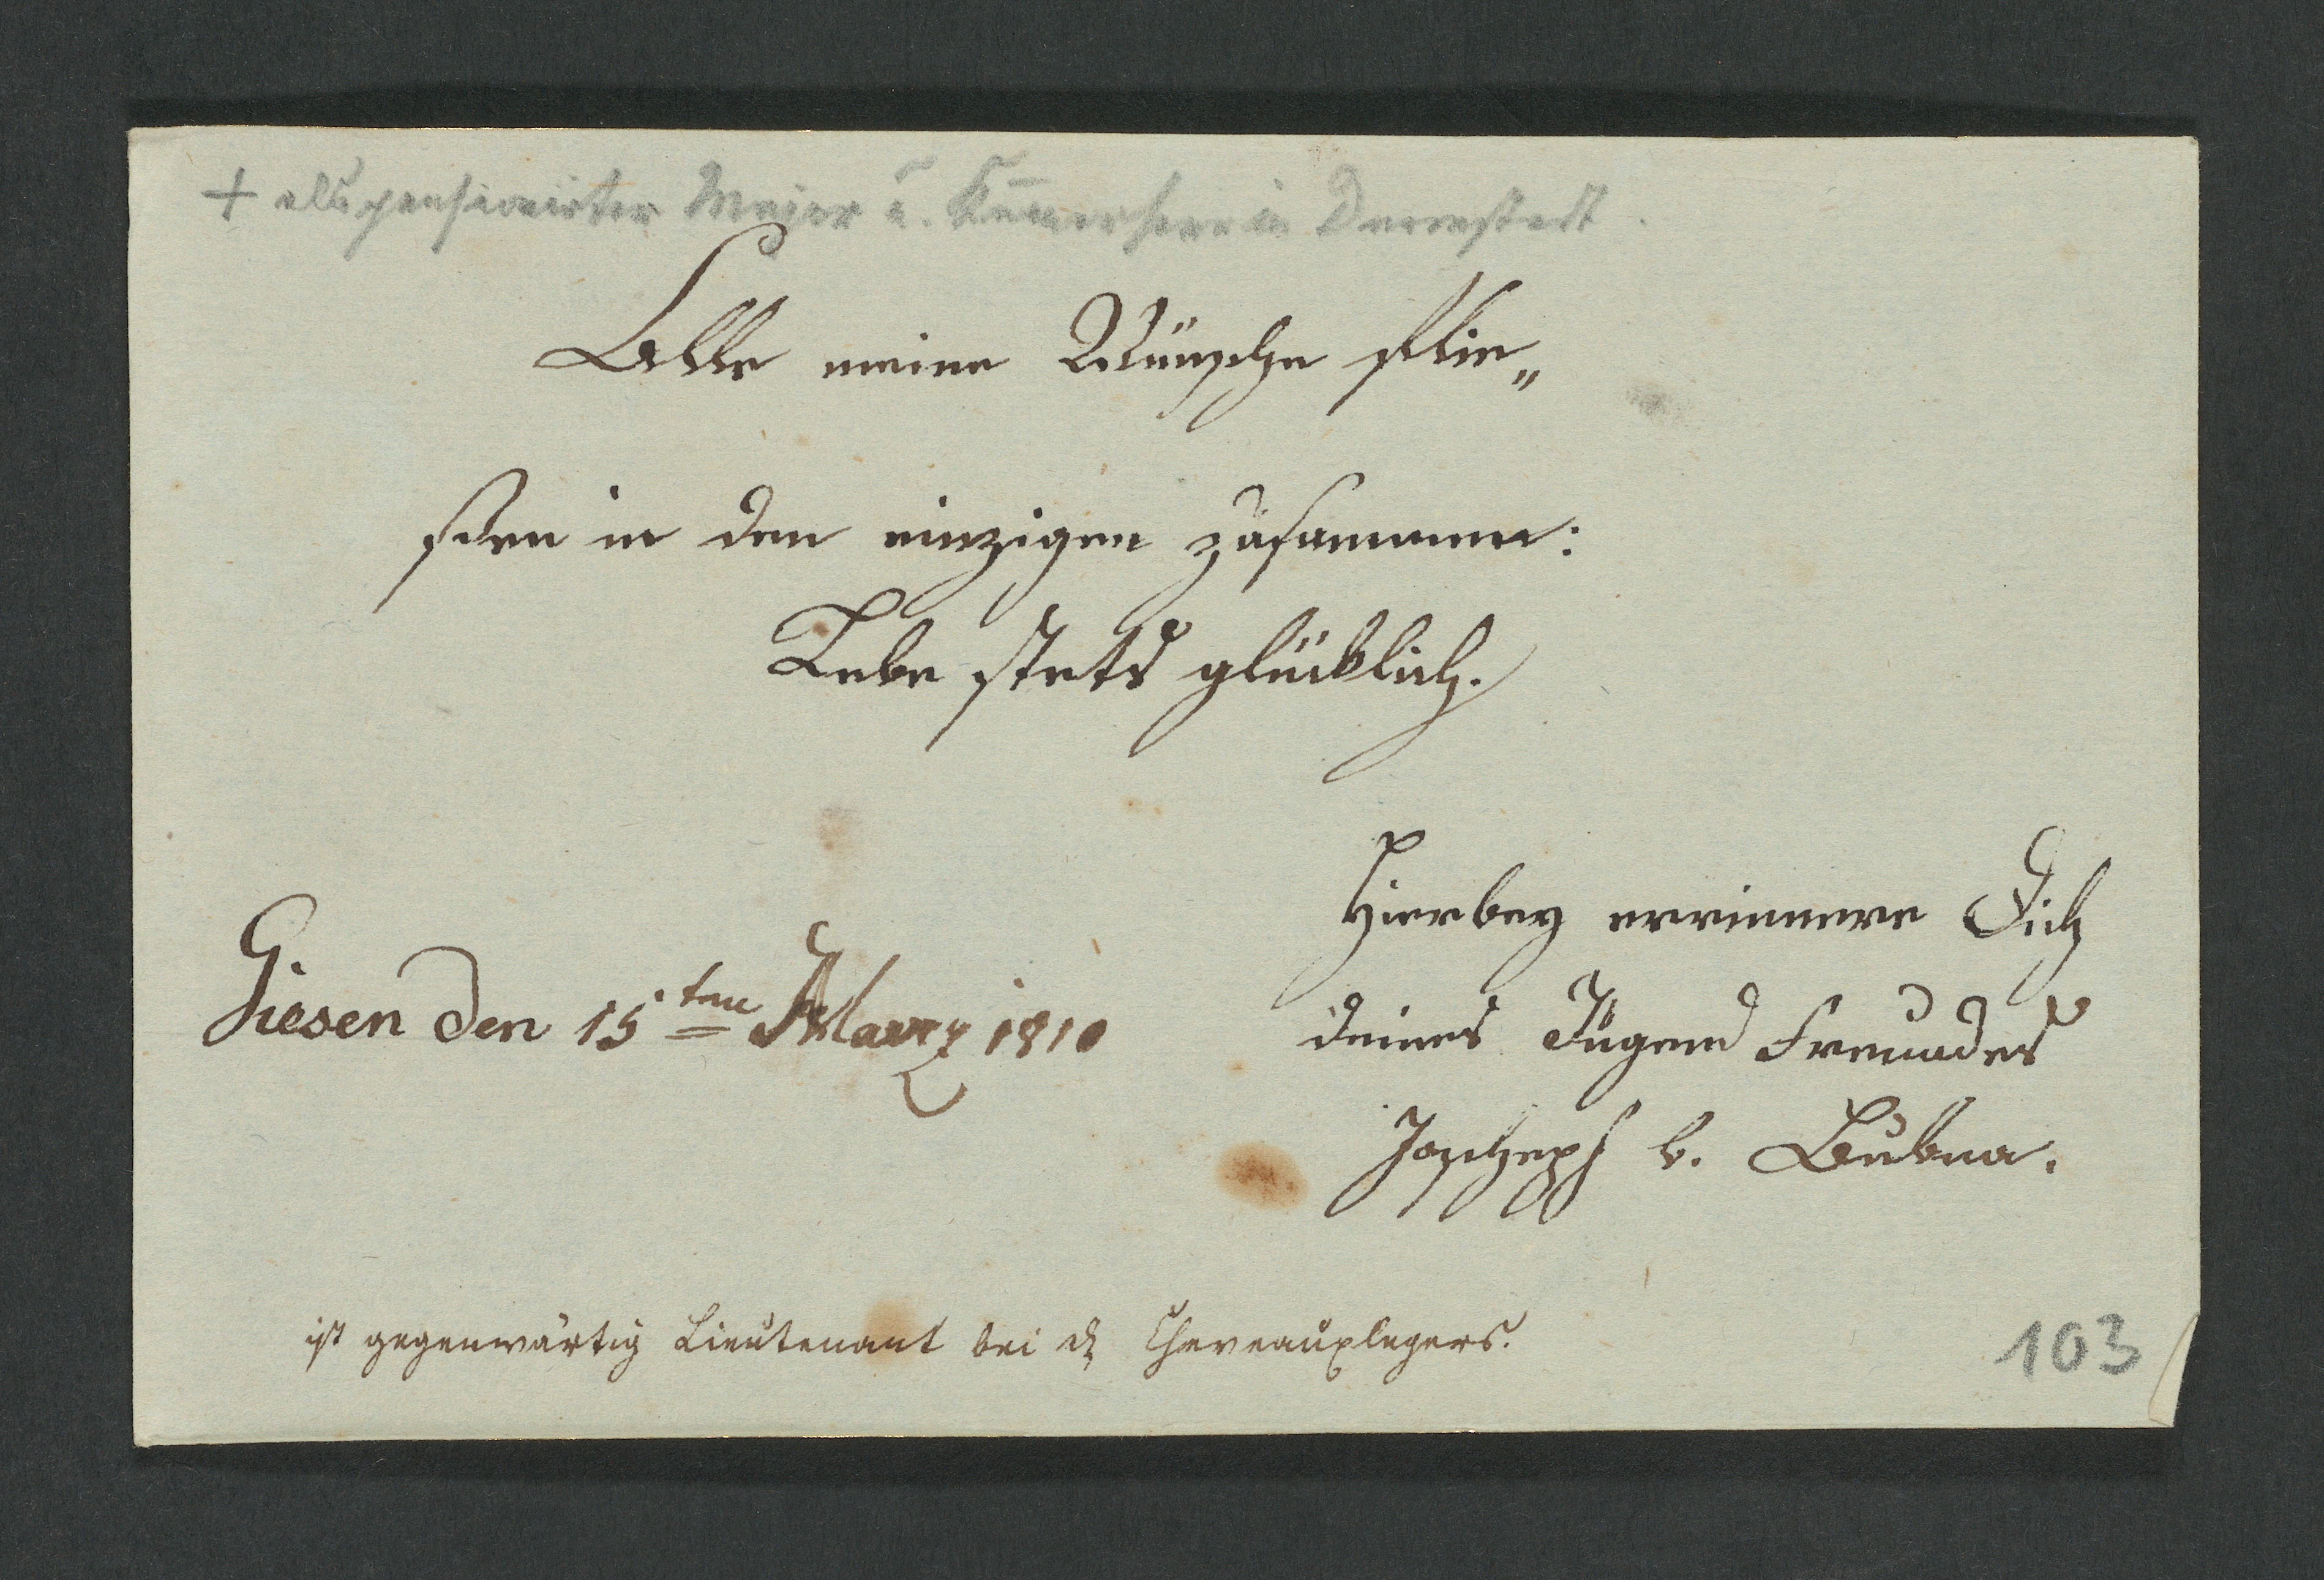 + als pensionirter Major u. Kam̅erherr in Darmstadt.
Alle meine Wünsche flie„
ssen in den einzigen zusammen:
Lebe stets glücklich.
Hierbey errinnere Dich
Giesen den 15ten Marz 1810
deines Jugend Freundes
Joscheph v. Bubna.
ist gegenwärtig Lieutenant bei d Cheveauxlegers.
103